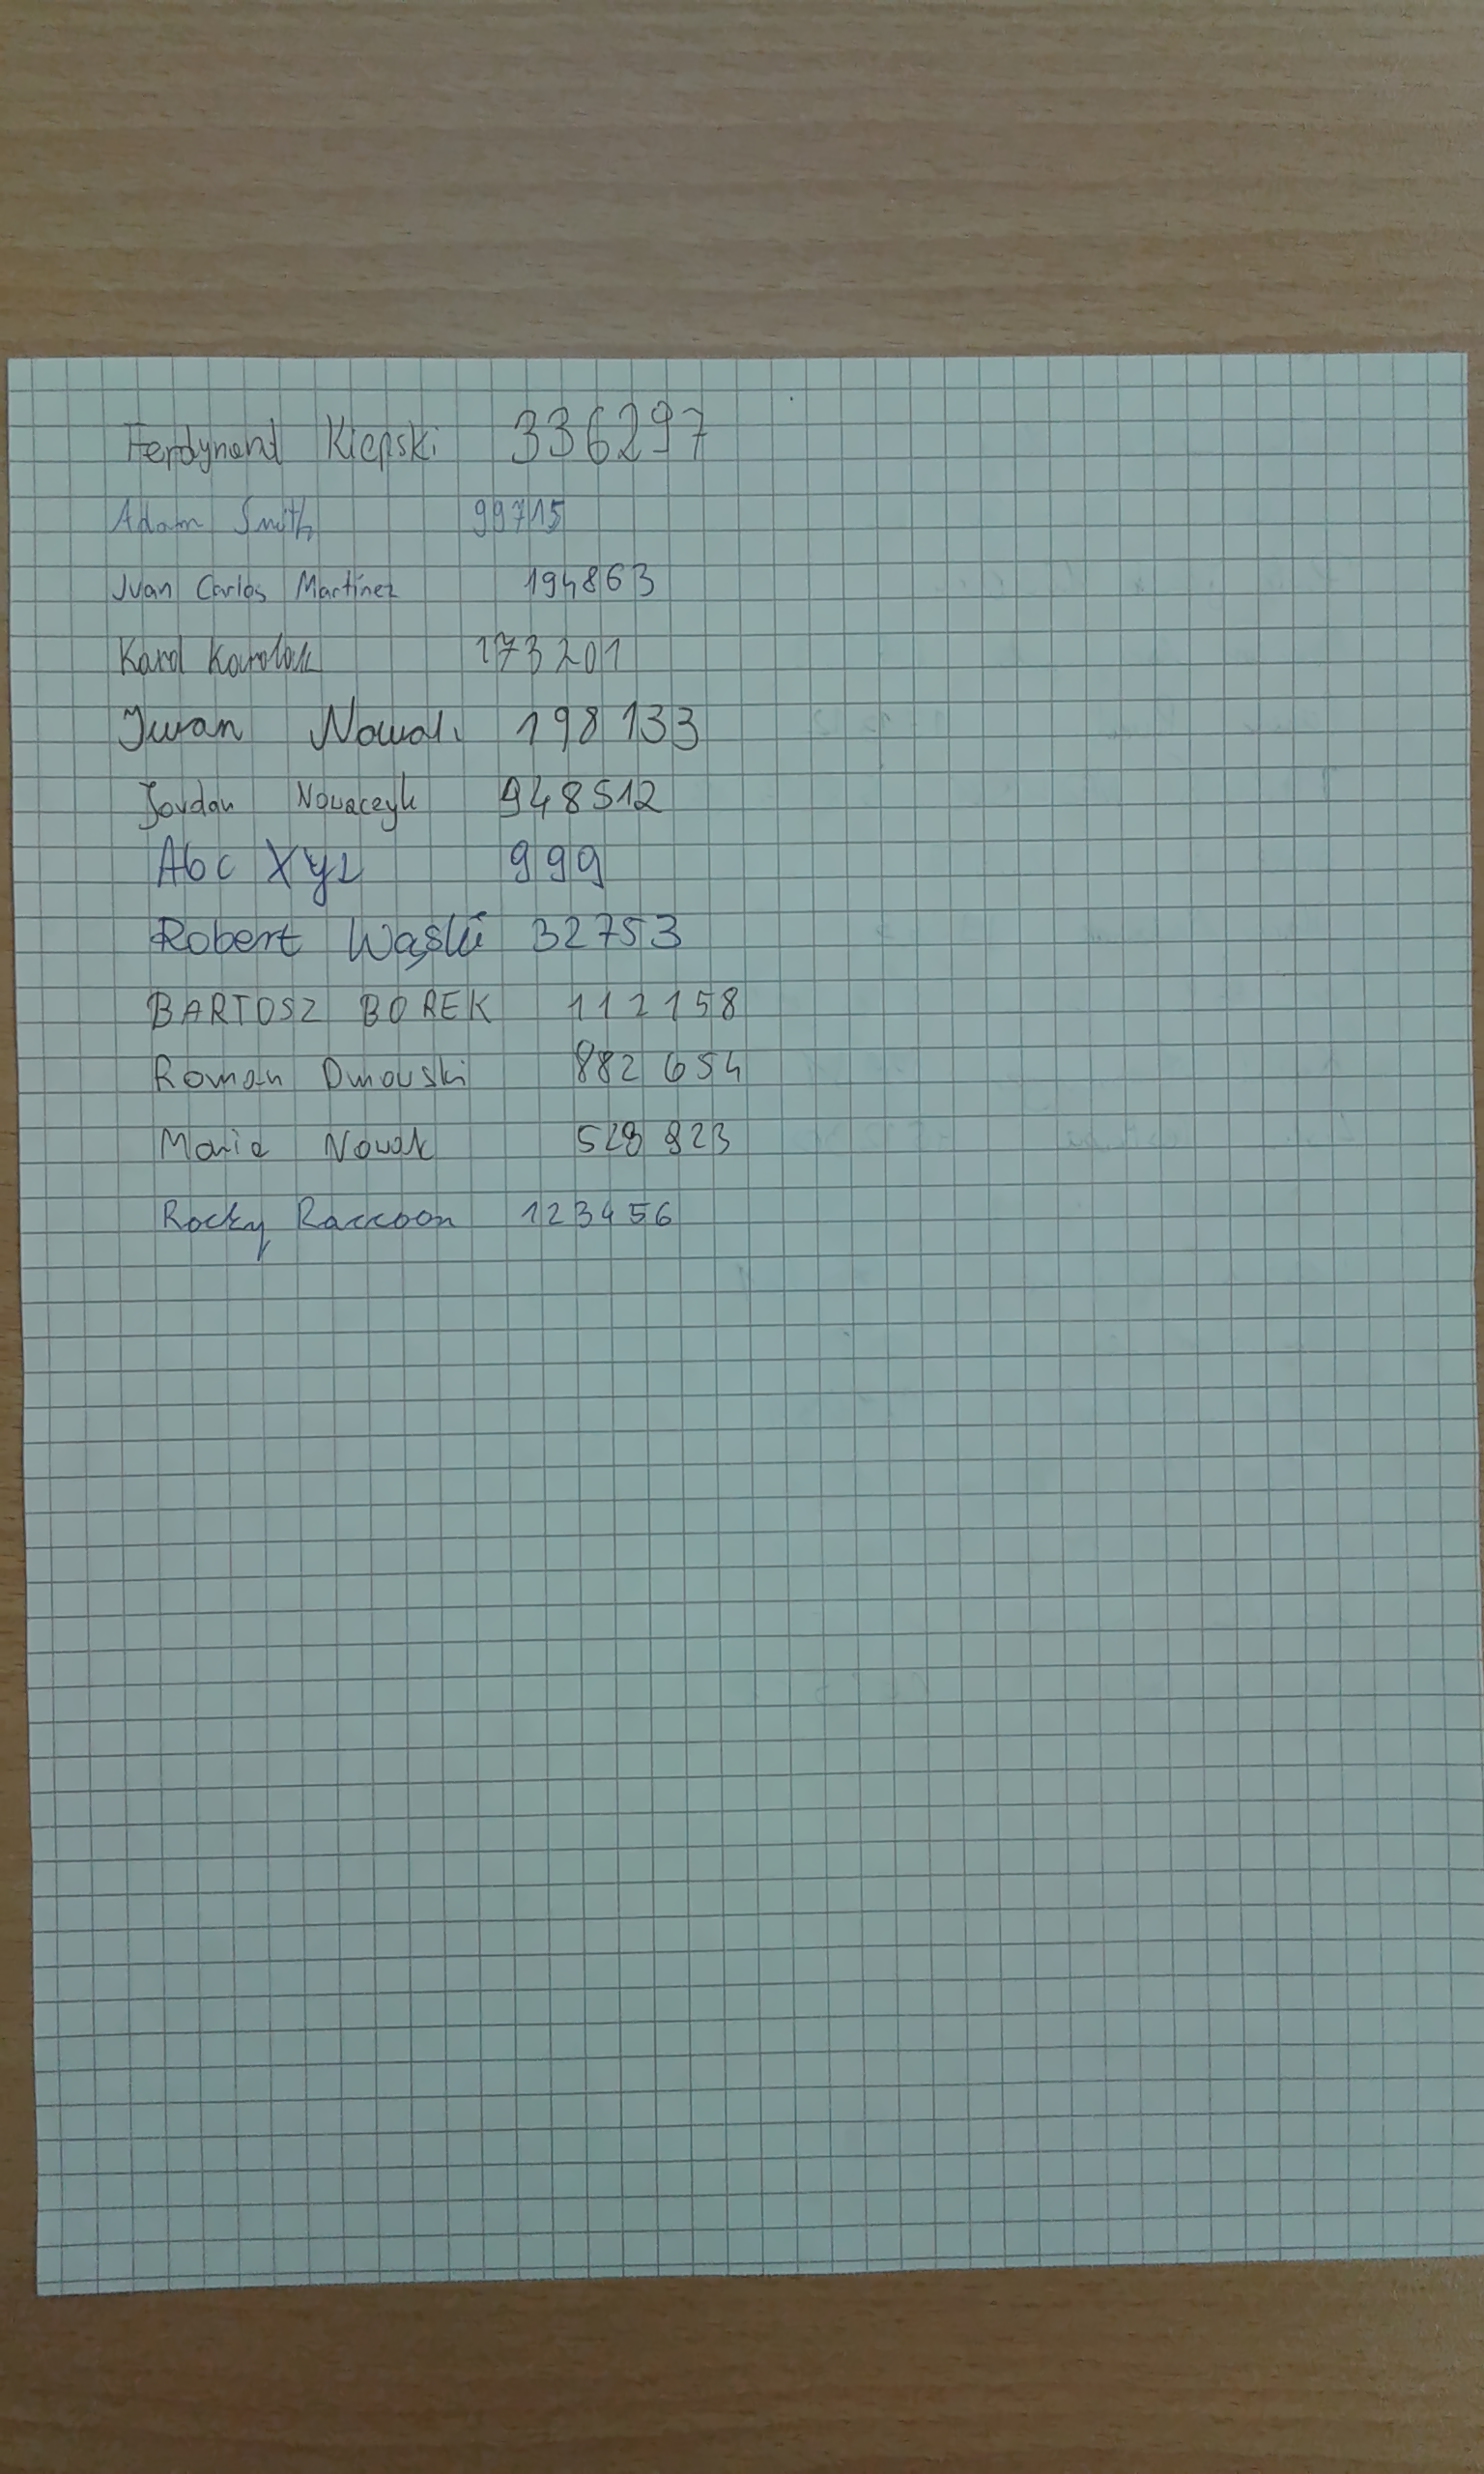 Ferdynand Kiepski 336297
Adam Smith 99715
Juan Carlos Martínez 194863
Karol Karolak 173201
Iwan Nowak 198133
Jordan Nowaczyk 948512
Abc Xyz 999
Robert Wąski 32753
BARTOSZ BOREK 112158
Roman Dmowski 882654
Maria Nowak 528823
Rocky Raccoon 123456